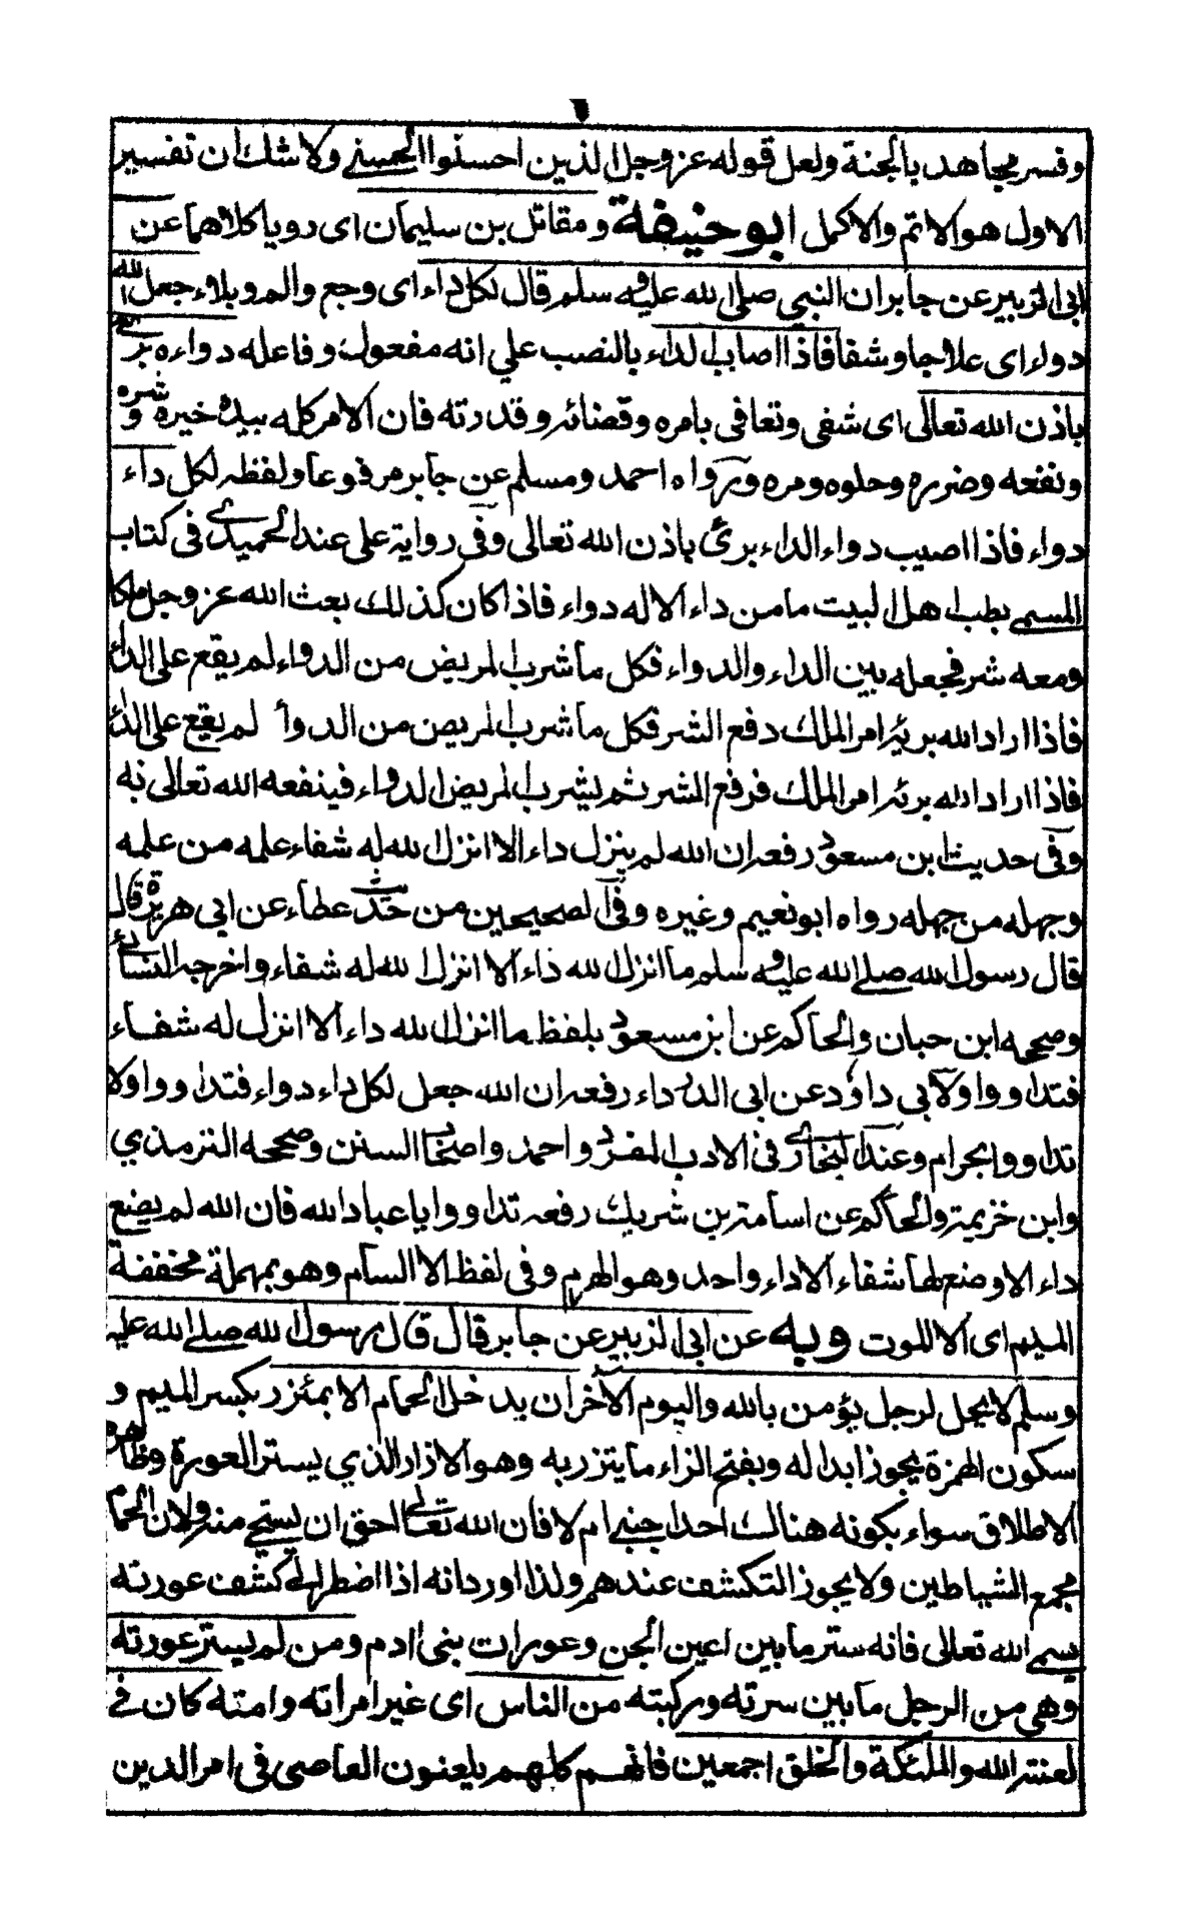 ٦
وفسر مجاهد بالجنة ولعل قوله عز وجل الذين احسنوا الحسنى ولا شك ان تفسير
الاول هو الاتم والاكمل ابو حنيفة ومقاتل بن سليمان اى رويا كلاهما عن
ابى الزبير عن جابر ان النبي صلى الله عليه وسلم قال لكل داء اى وجع والم وبلاء جعل الله
دواء اى علاجا وشفا فاذا اصاب الداء بالنصب علي انه مفعول وفاعله دواءه برئ
باذن الله تعالى اى شفى وتعافى بامره وقضائه وقدرته فان الامر كله بيده خيره وشره
ونفعه وضرره وحلوه ومره ورواه احمد ومسلم عن جابر مرفوعا ولفظه لكل داء
دواء فاذا اصيب دواء الداء برئ باذن الله تعالى وفى رواية على عند الحميدي فى كتاب
المسمى بطب اهل البيت ما من داء الا له دواء فاذا كان كذلك بعث الله عز وجل ملكا
ومعه شر فجعله بين الداء والدواء فكل ما شرب المريض من الدواء لم يقع على الداء
فاذا اراد الله برئه امر الملك دفع الشر فكل ما شرب المريض من الدوأ لم يقع على الدأ
فاذا اراد الله برئه امر الملك فرفع الشر ثم يشرب المريض الدواء فينفعه الله تعالى به
وفى حديث ابن مسعود رفعه ان الله لم ينزل داء الا انزل الله له شفاء علمه من علمه
وجهله من جهله رواه ابو نعيم وغيره وفى الصحيحين من حديث عطاء عن ابى هريرة قال
قال رسول الله صلى الله عليه وسلم ما انزل الله داء الا انزل الله له شفاء واخرجه النسائى
وصححه ابن حبان والحاكم عن ابن مسعود بلفظ ما انزل الله داء الا انزل له شفاء
فتداووا ولابى داود عن ابى الدرداء رفعه ان الله جعل لكل داء دواء فتداووا ولا
تداووا بحرام وعند البخارى فى الادب المفرد واحمد واصحاب السنن وصححه الترمذي
وابن خزيمة والحاكم عن اسامة بن شريك رفعه تداووا يا عباد الله فان الله لم يضع
داء الا وضع لها شفاء الا داء واحد وهو الهرم وفى لفظ الا السام وهو بمهملة مخففة
الميم اى الا الموت وبه عن ابى الزبير عن جابر قال قال رسول الله صلى الله عليه
وسلم لا يحل لرجل يؤمن بالله واليوم الآخر ان يدخل الحمام الا بمئزر بكسر الميم و
سكون الهمزة يجوز ابداله وبفتح الزاء ما يتزر به وهو الازار الذي يستر العورة وظاهره
الاطلاق سواء بكونه هنالك احد اجنبي ام لا فان الله تعالى احق ان يستحى منه ولان الحمام
مجمع الشياطين ولا يجوز التكشف عندهم ولذا اورد انه اذا اضطر الى كشف عورته
يسمى الله تعالى فانه ستر ما بين اعين الجن وعورات بنى ادم ومن لم يستر عورته
وهى من الرجل ما بين سرته وركبته من الناس اى غير امرأته وامته كان فى
لعنة الله والملئكة والخلق اجمعين فانهم كلهم يلعنون العاصى فى امر الدين